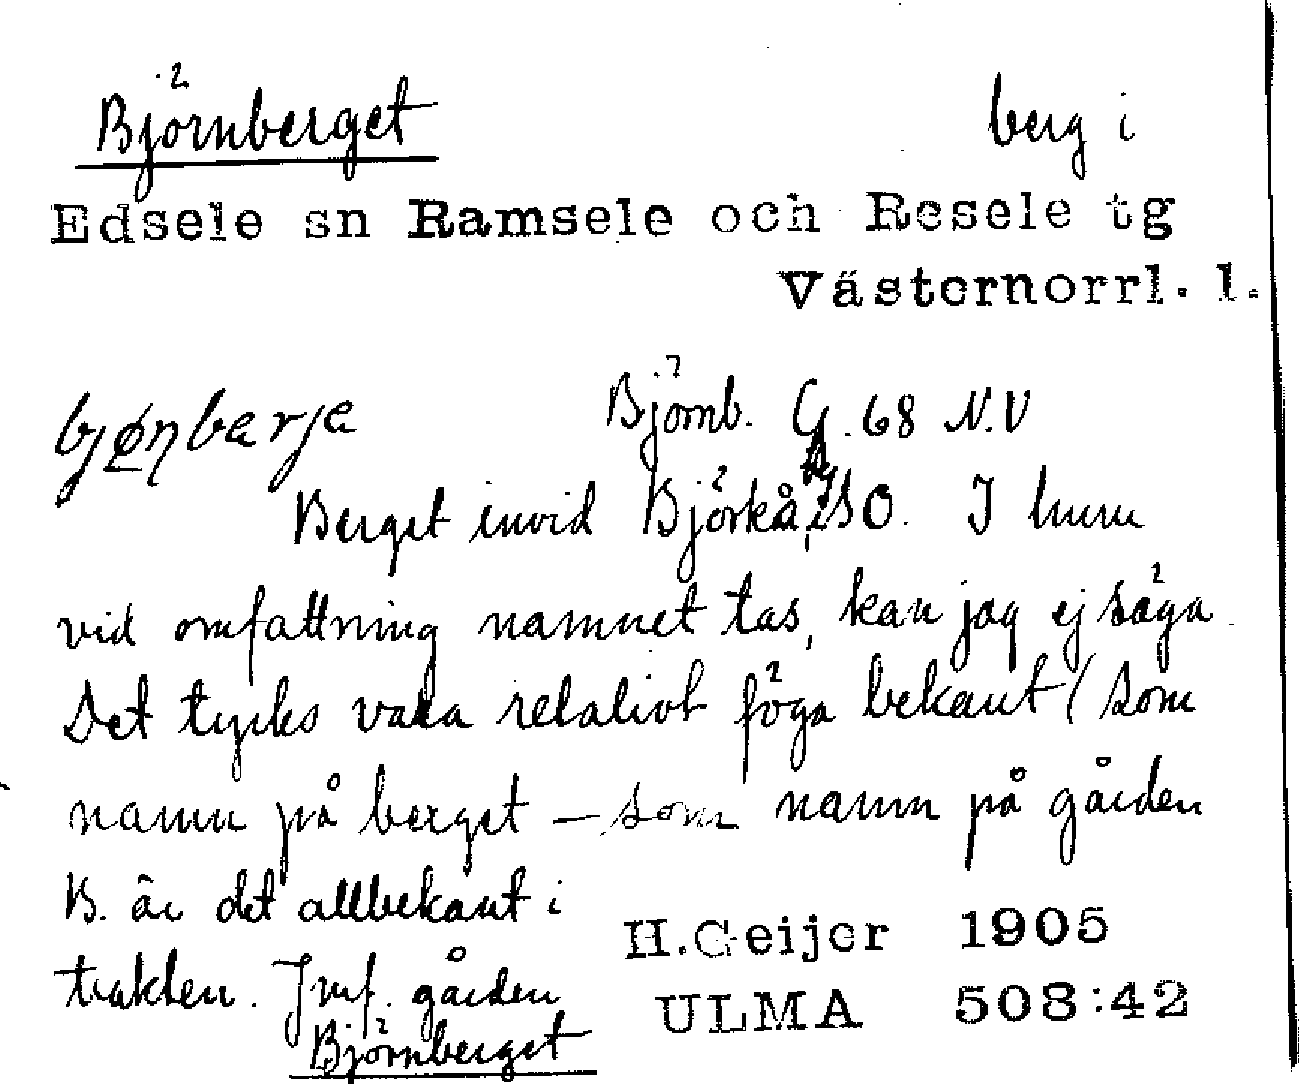 Björnberget berg i
Edsele sn Ramsele och Resele tg
Västernorrl. l.
bjønbarja Björnb. G. 68 N.V
Berget invid Björkå, SO. I huru
vid omfattning namnet tas, kan jag ej säga.
Det tycks vara relativt föga bekant (som
namn på berget – som namn på gården
B. är det allbekant i
trakten. Jmf. gården
Björnberget
H. Geijer 1905
ULMA 508:42